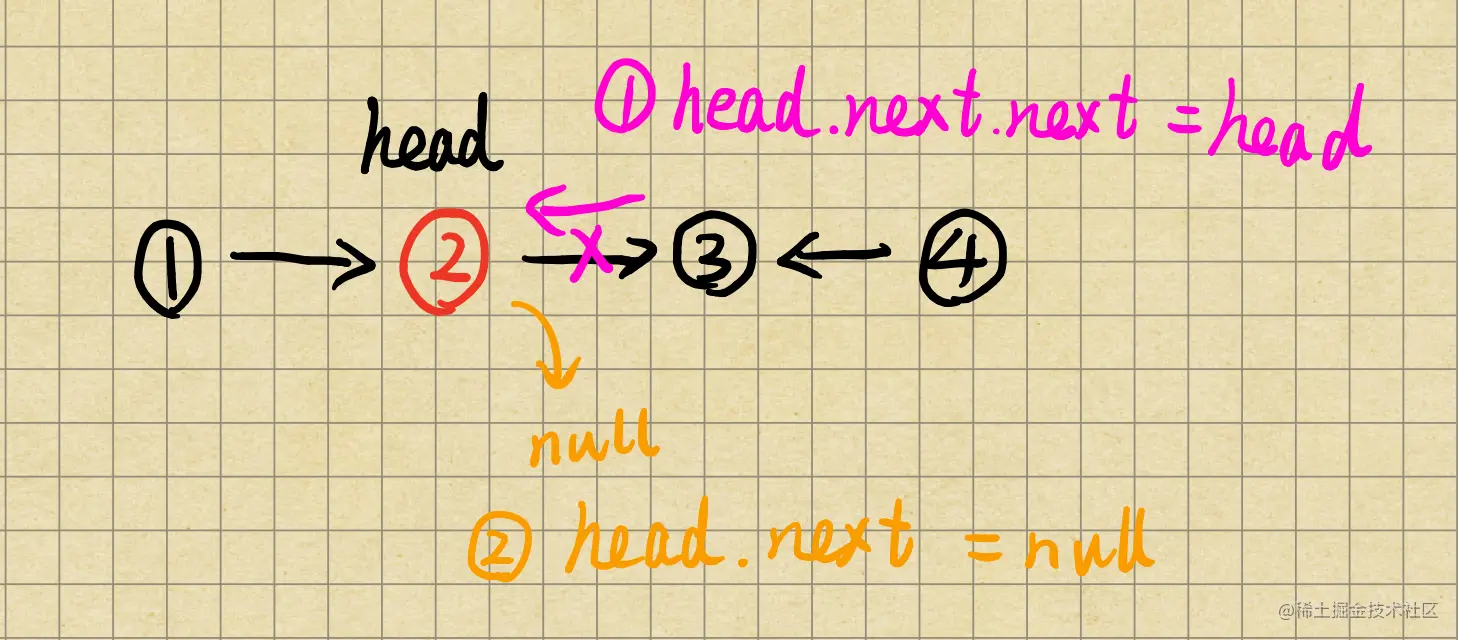 ① head.next.next = head
head
① ② ③ ④
null
② head.next = null
@稀土掘金技术社区